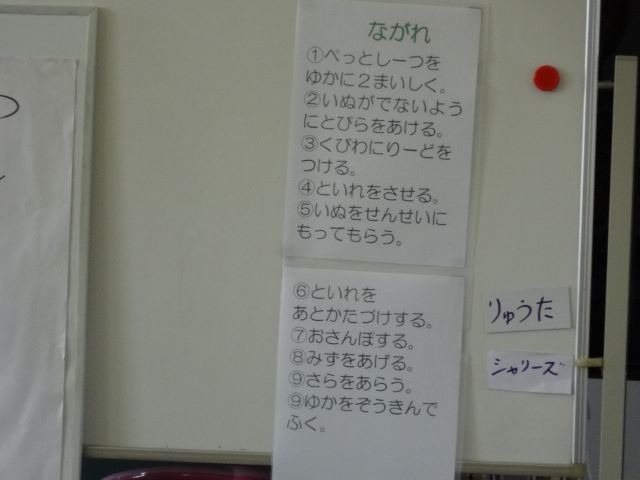 ながれ
①ぺっとしーつを
ゆかに２まいしく。
②いぬがでないよう
にとびらをあける。
③くびわにりーどを
つける。
④といれをさせる。
⑤いぬをせんせいに
もってもらう。
⑥といれを
あとかたづけする。
⑦おさんぽする。
⑧みずをあげる。
⑨さらをあらう。
⑨ゆかをぞうきんで
ふく。
りゅうた
シャリーズ